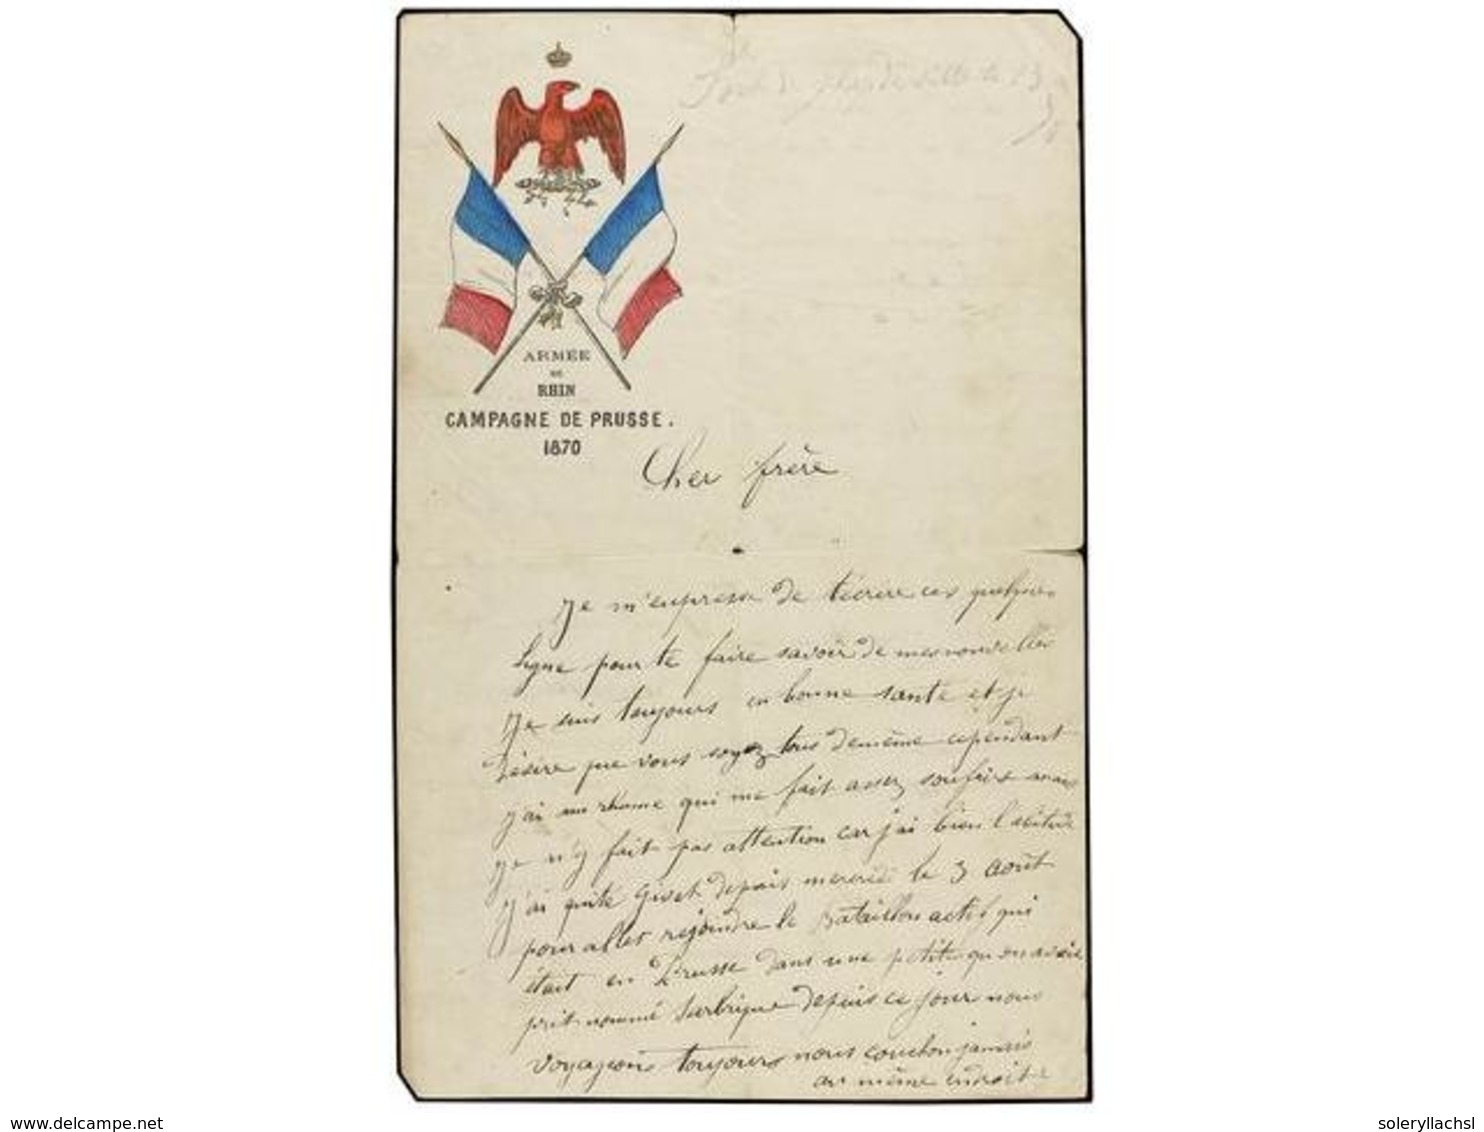 ARMÉE
DU
RHIN
CAMPAGNE DE PRUSSE.
1870
Cher frère
Je m'empresse de técrire ces quelques
ligne pour te faire savoir de mes nouvelles
Je suis toujours en bonne santé et je
désire que vous soyez tous demême cependant
j'ai un rhume qui me fait assez soufrire mais
je n'y fait pas attention car j'ai bien l'
j'ai quité Givet depuis mercredi le 3 août
pour aller rejoindre le Bataillon actif qui
était en Prusse dans une petite qu on avais
prit nommé Sarbrique depuis ce jour nous
voyageons toujours nous couchon jamais
au même endroit
www.delcampe.net
soleryllachsl